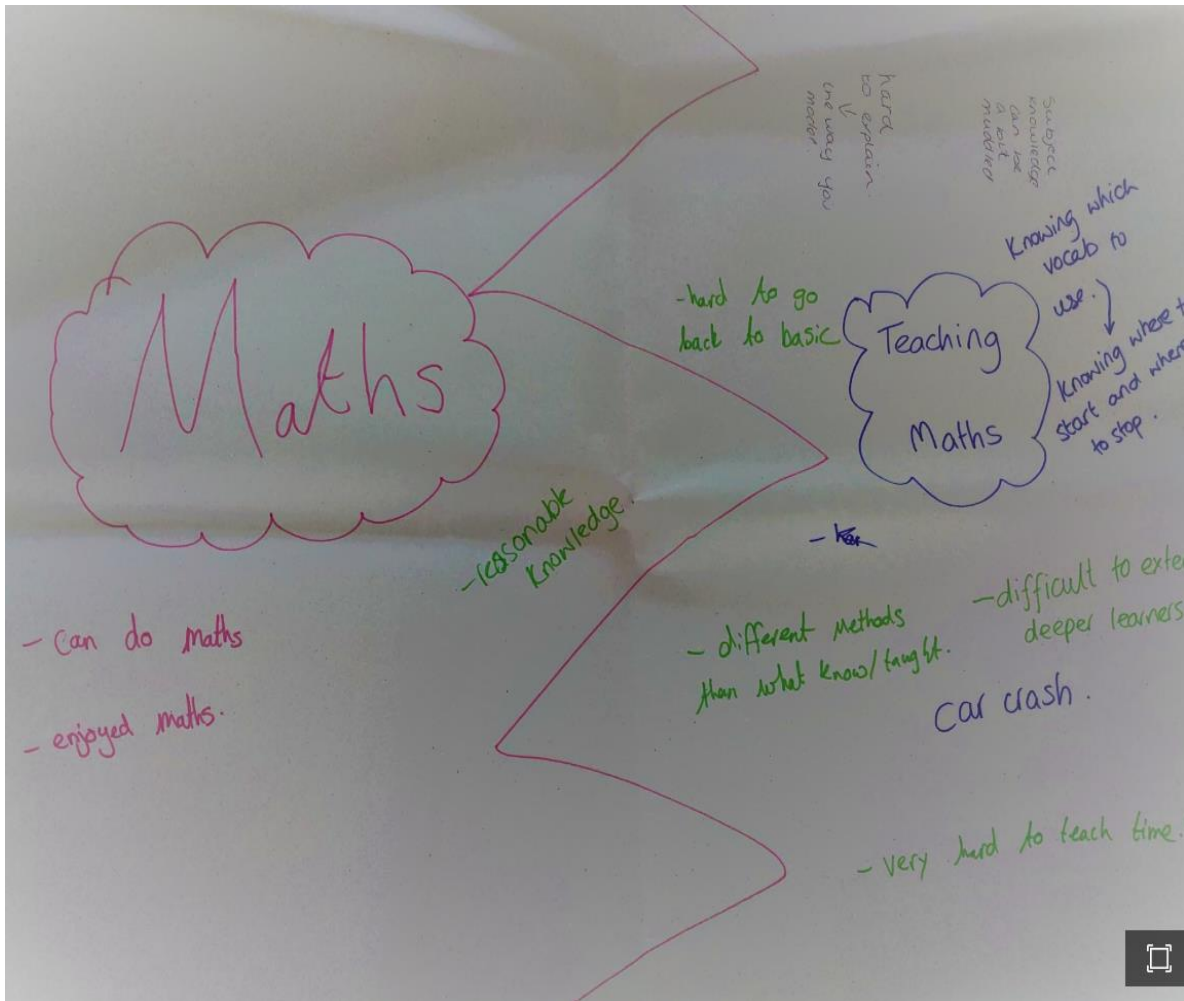 Maths
- Can do maths
- enjoyed maths.
- reasonable
knowledge.
hard
to explain
one way you
model.
Subject
knowledge
can be
a bit
muddled
- hard to go
back to basic
Teaching
Maths
Knowing which
vocab to
use.
Knowing where t
start and where
to stop.
- different methods
than what know/taught.
- difficult to exte
deeper learners
car crash.
- very hard to teach time.